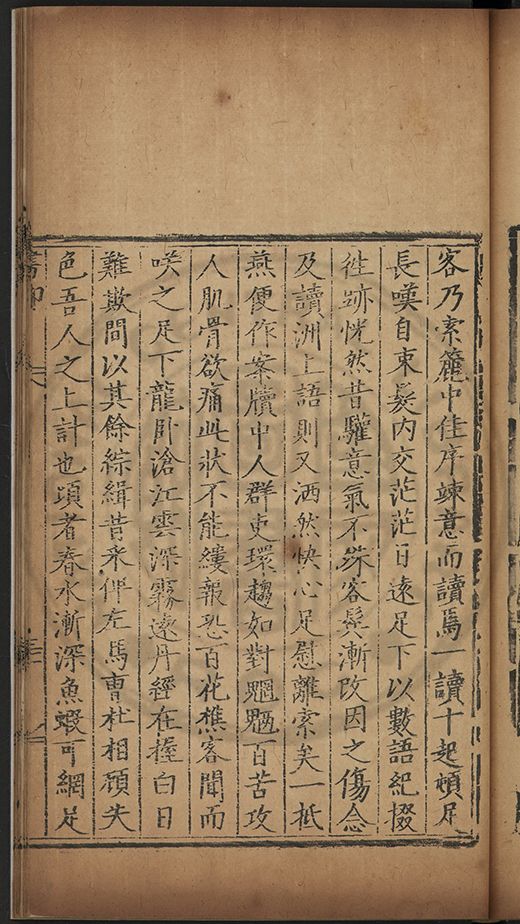 客乃索簏中佳序竦意而讀焉一讀十起頓足
長嘆自束髮內交茫茫日遠足下以數語紀掇
徃跡恍然昔驩意氣不殊客鬂漸改因之傷念
及讀洲上語則又洒然快心足慰離索矣一抵
燕便作案牘中人群吏環趨如對魍魎百苦攻
人肌骨欲痛此狀不能縷報恐百花樵客聞而
咲之足下龍卧滄江雲深霧遶丹經在握白日
難歎間以其餘綜緝昔來俾左馬曹杜相顧失
色吾人之上計也頃者春水漸深魚蝦可網足